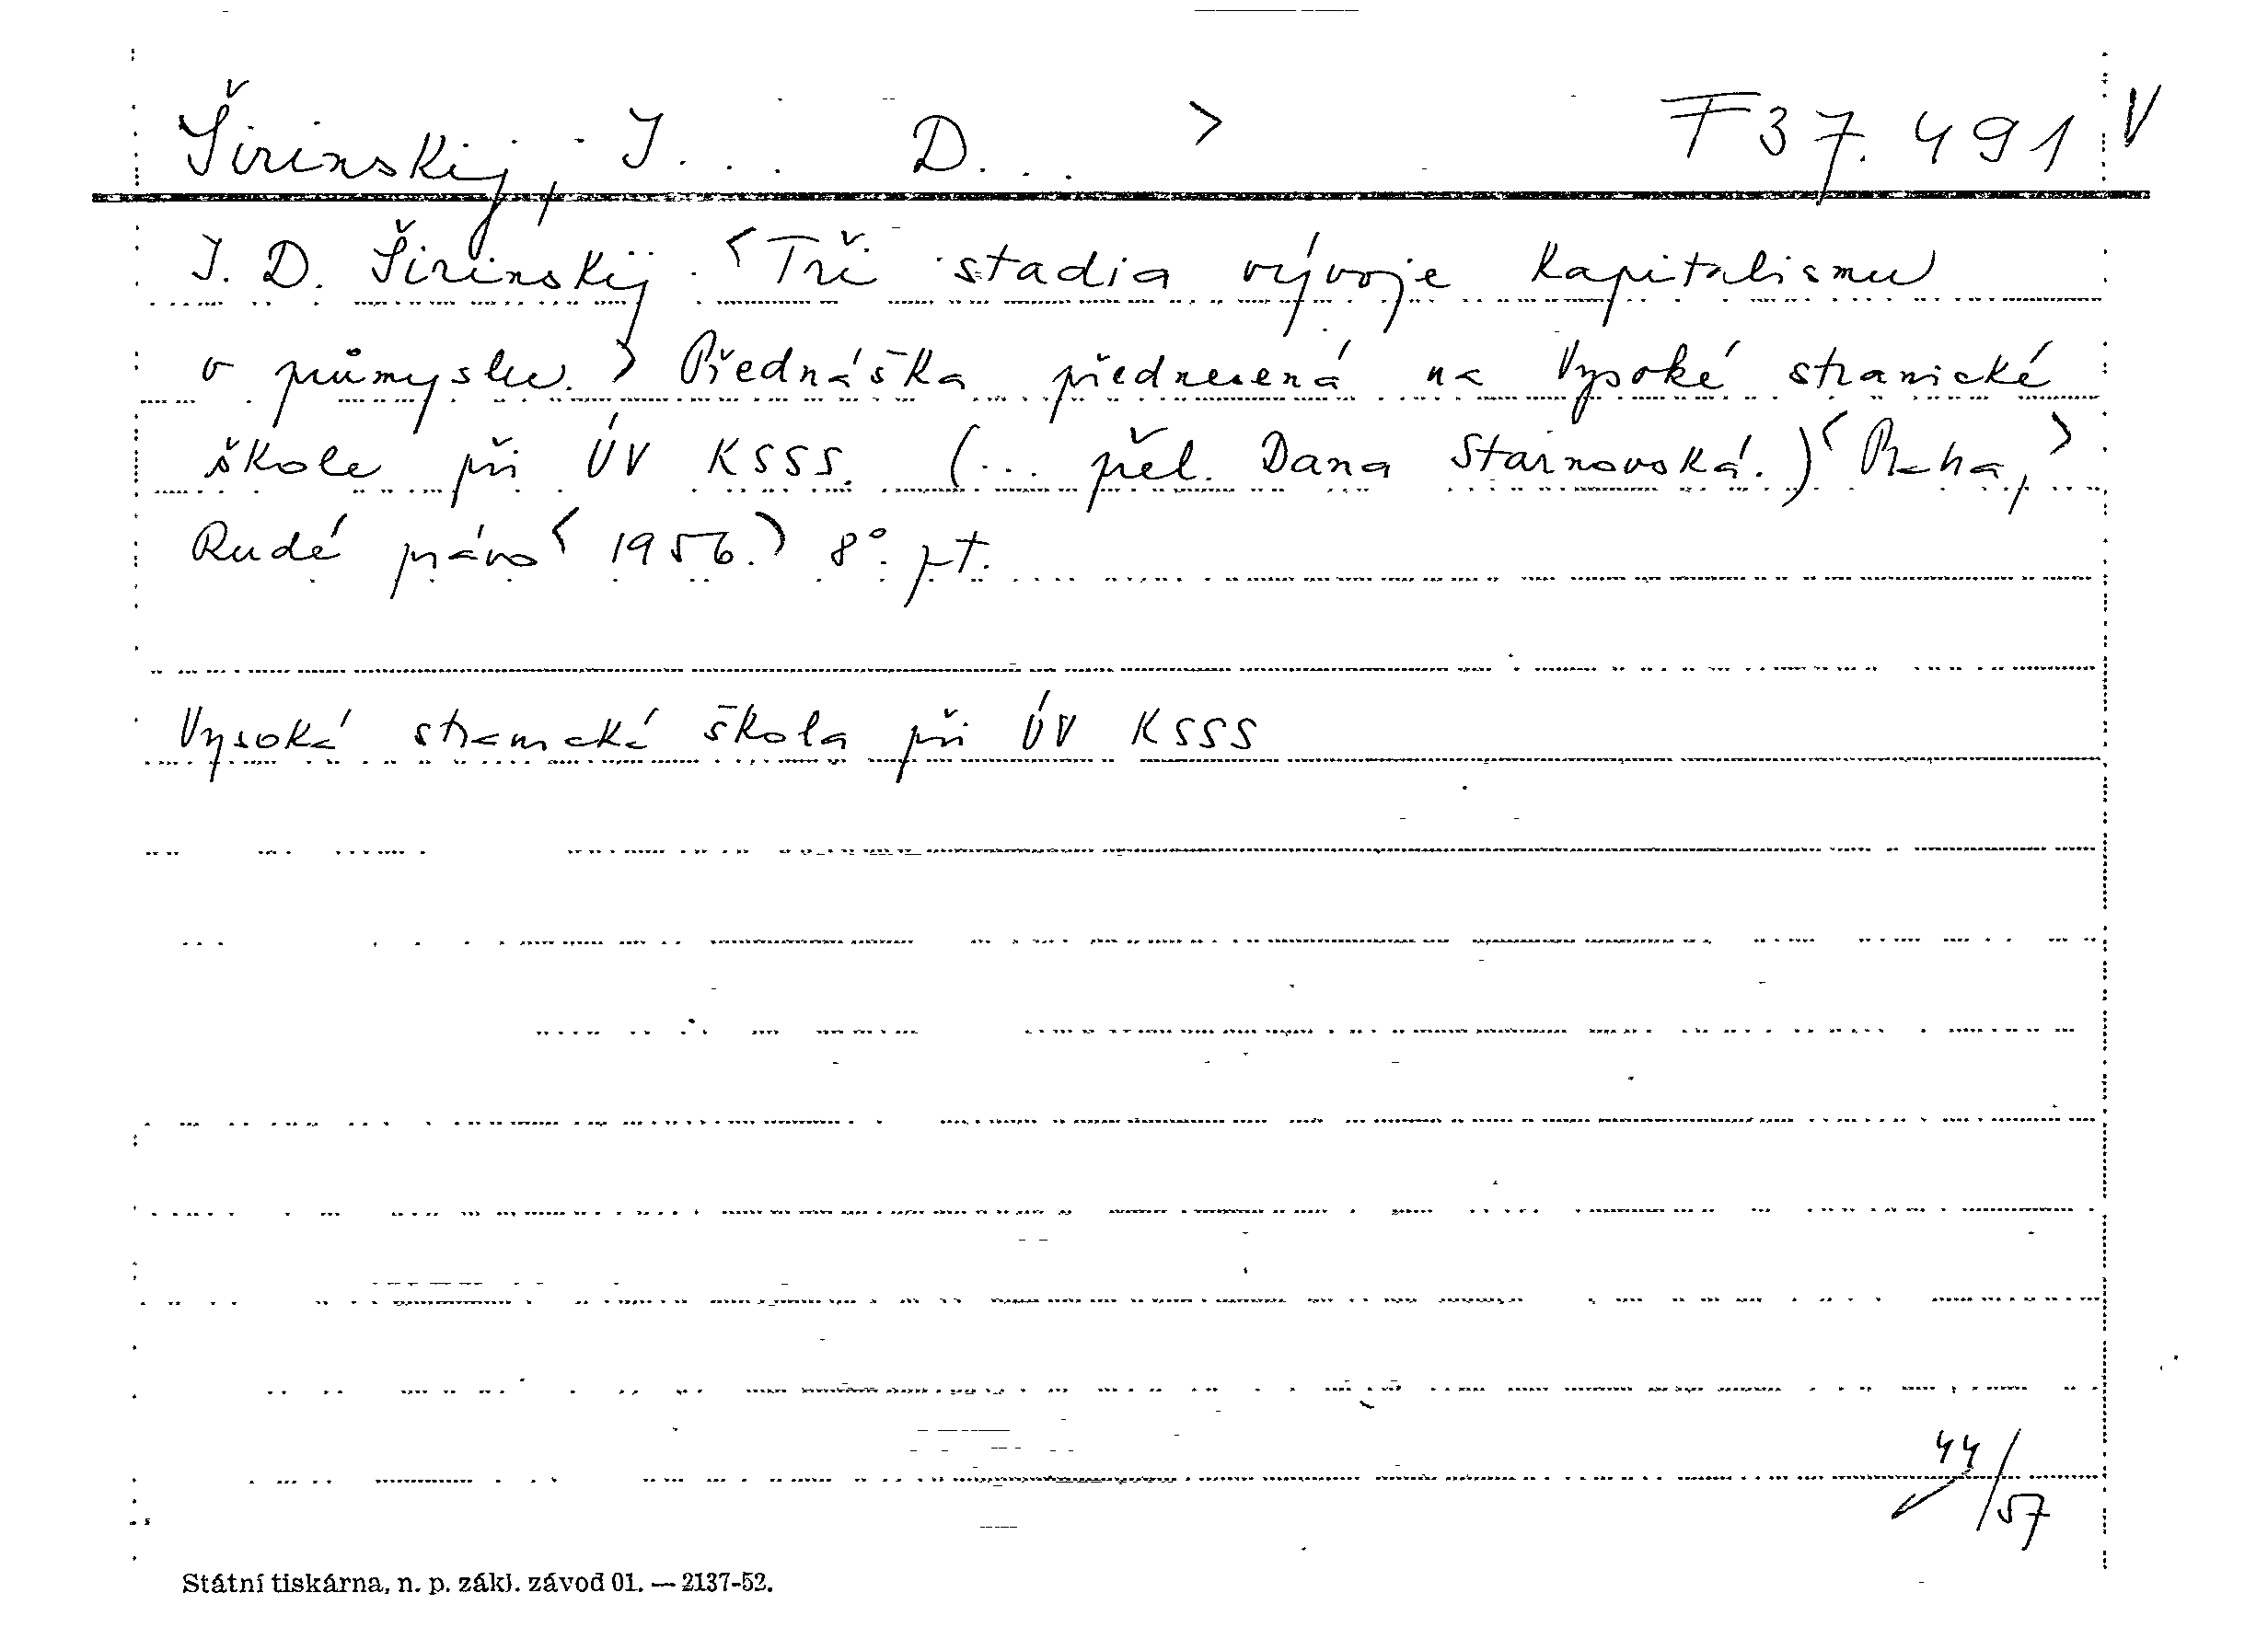 Širinskij, J... D... > F 37.491 V
J. D. Širinskij. <Tři stadia vývoje kapitalismu
v průmyslu.> Přednáška přednesená na Vysoké stranické
škole při ÚV KSSS. (... přel. Dana Stárnovská.) <Praha,>
Rudé právo <1956.> 8°. pt.
Vysoká stranická škola při ÚV KSSS
44/57
Státní tiskárna, n. p. zákl. závod 01. — 2137-52.